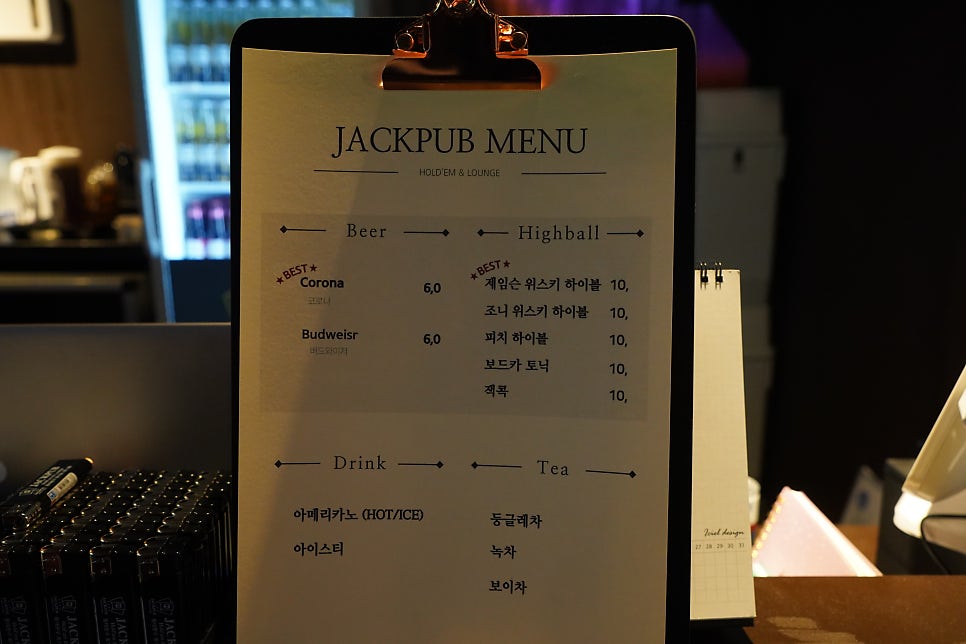 JACKPUB MENU
HOLD'EM & LOUNGE
Beer
★BEST★
Corona 6,0
코로나
Budweisr 6,0
버드와이저
Highball
★BEST★
제임슨 위스키 하이볼 10,
조니 위스키 하이볼 10,
피치 하이볼 10,
보드카 토닉 10,
잭콕 10,
Drink
아메리카노 (HOT/ICE)
아이스티
Tea
둥글레차
녹차
보이차
Iciel design
27 28 29 30 31
JACK
JACK
JACK